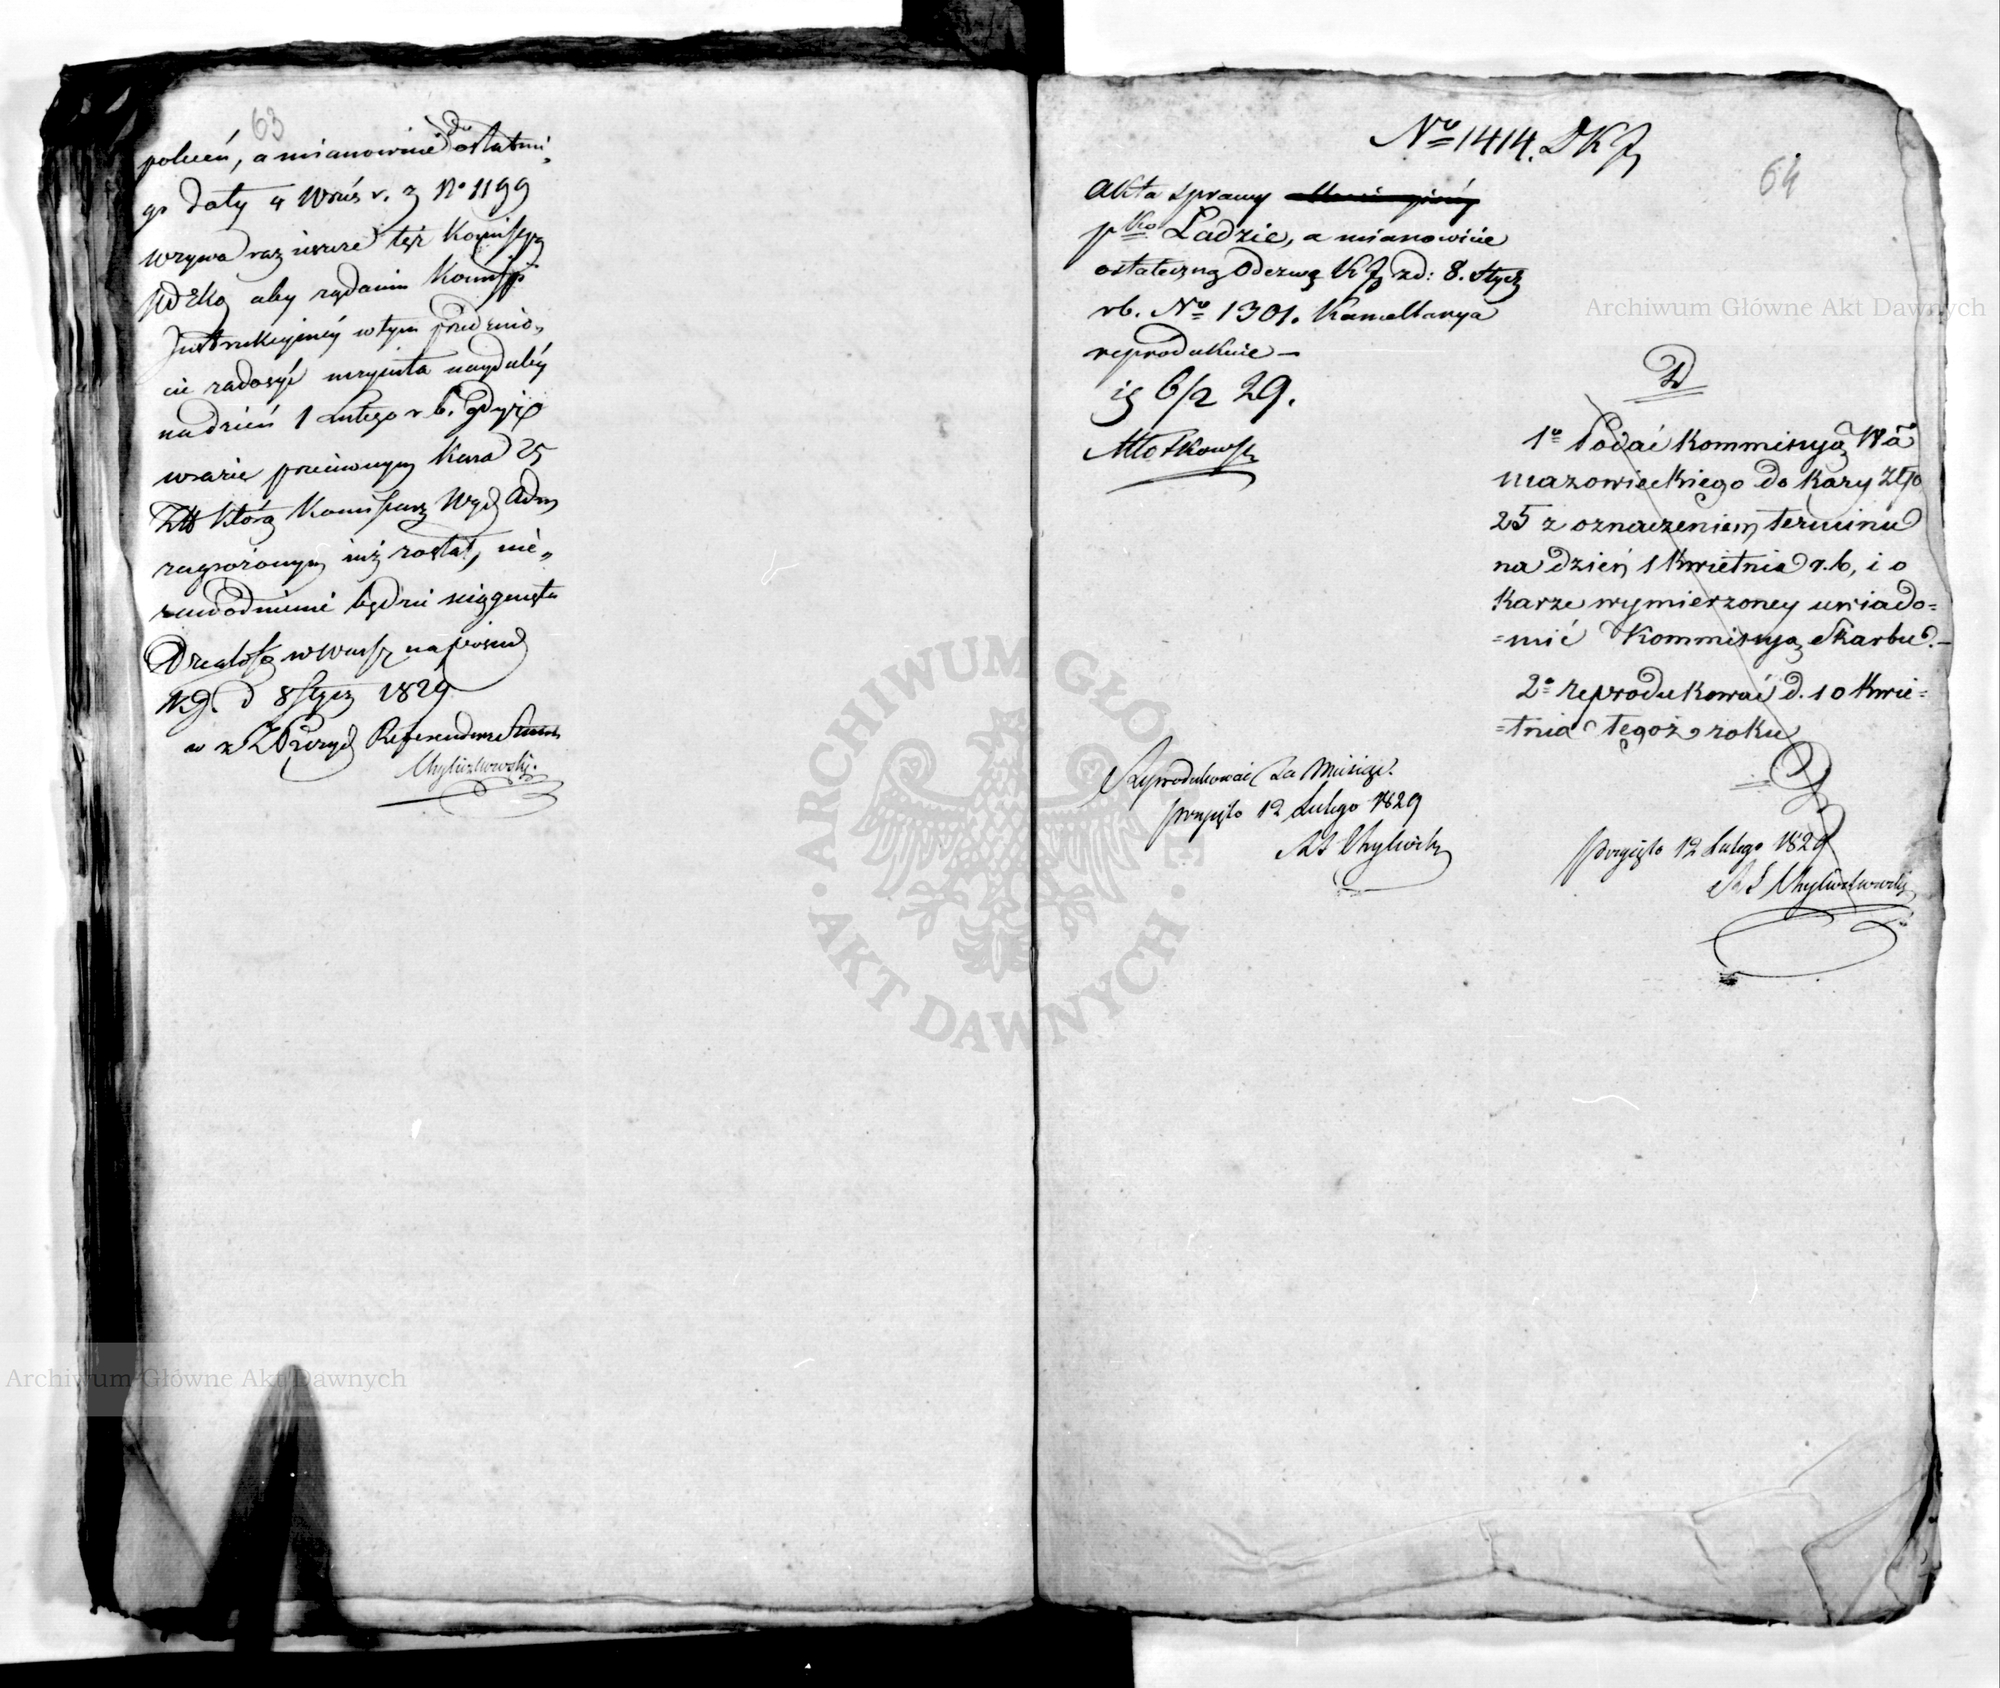 63
poleceń, a mianowicie do ostatnie„
go daty 4 Wrześ. r. z No 1199
wzywa raz jeszcze tęż Kommissyą
aby żądaniu Kommissyi
Instrukcyjney w tym przedmio„
cie zadosyć uczyniła naydaléy
na dzień 1 Lutego r. b. gdyż
w razie przeciwnym kara 25
Złł którą Kommissarz Wydz Adm
zagrożonym już został, nie„
zawodnie będzie ściągnięta
Działo się w Warsz na posied
d 8 Stycz 1829
w z Prezyd Referendarz Stanu
Chyliczkowski.
No 1414. DKJ
64
Akta sprawy
pko Ladzie, a mianowicie
ostateczną Odezwę KJ z d: 8. Stycz
rb. No 1301. Kancellarya
reprodukuie —
6/2 29.
Młotkowski
D
1o Podać Kommissyą Wa
Mazowieckiego do kary Złp
25 z oznaczeniem terminu
na dzień 1 Kwietnia r. b, i o
karze wymierzoney uwiado=
=mić Kommissyą Skarbu. —
2o reprodukować d. 10 Kwie=
=tnia tegoż roku
Reprodukować za Miesiąc.
przyięto 12 Lutego 1829
przyięto 12 Lutego 1829
Chyliczkowski
Archiwum Główne Akt Dawnych
Archiwum Główne Akt Dawnych
ARCHIWUM GŁÓWNE · AKT DAWNYCH ·